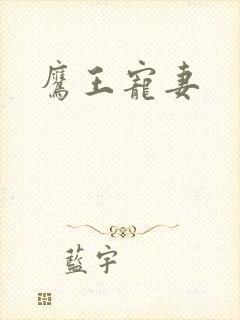 鷹王寵妻
藍宇